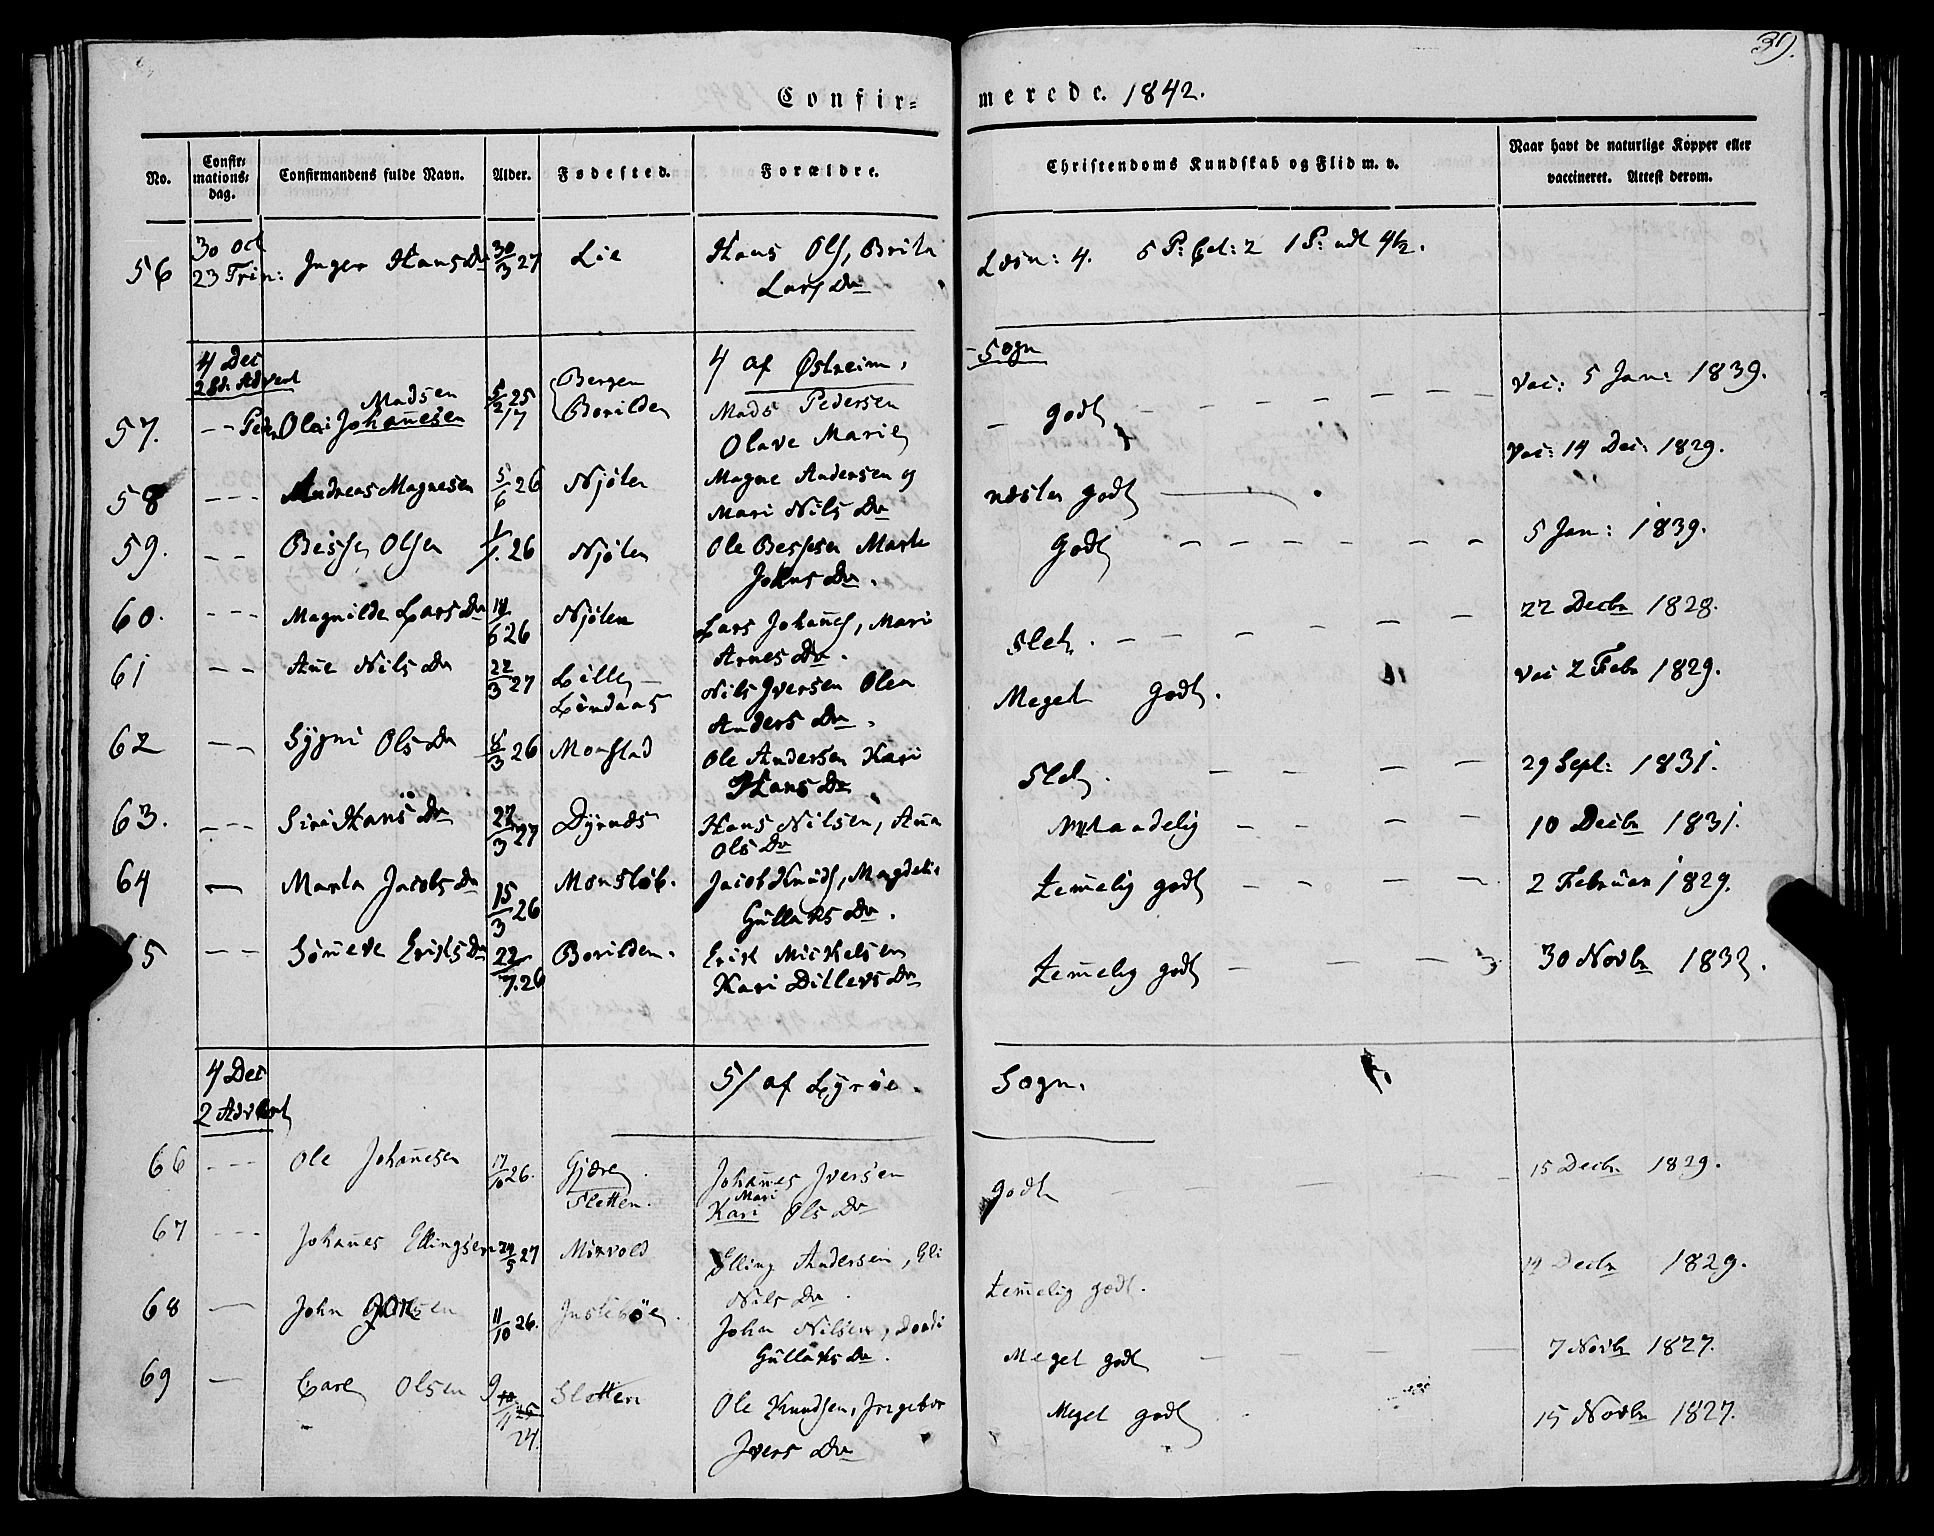 39.
Confir= merede. 1842.
No. Confir= mations= dag. Confirmandens fulde Navn. Alder. Fødested. Forældre. Christendoms Kundskab og Flid m. v. Naar havt de naturlige Kopper eller vaccineret. Attest derom.
56 30 Oct 23 Trin: Inger Hans Dr 30/3 27 Lie Hans Ols, Brita Lars Dr Læsn: 4. 5 P: 2 1 P: udt 4½.
4 Dec 2 Sd. Advent 4 af Østreim, Sogn
57. - - Olai Johañesen Madsen 5/2 25 17 Bergen Borilden Mads Pedersen Olave Marie godt Vac: 5 Jan: 1839.
58 - - - Andreas Magnesen 5/6 26 Njøten Magne Andersen og Mari Nils Dr næsten godt Vac: 14 Dec: 1829.
59. - - Besse Olsen 1/1. 26 Njøten Ole Bessesen Marte Johns Dr. Godt 5 Jan: 1839.
60. - - - Magnilde Lars Dr 14/6 26 Njøten Lars Johañes, Mari Arnes Dr. Slet. 22 Decbr 1828.
61 - - Añe Nils Dr 22/3 27 Lille Lindaas Nils Iversen Olea Anders Dr. Meget Godt. Vac 2 Febr 1829.
62 - - Sygni Ols Dr 5/3 26 Monstad Ole Andersen Kari Hans Dr Slet. 29 Sept: 1831.
63. - - - Siri Hans Dr 22/3 27 Dyrnæs Hans Nilsen, Aña Ols Dr Maadelig 10 Decbr 1831.
64 - Marta Jacobs Dr 15/3 26 Monsløb. Jacob Knuds, Magdeli: Gullaks Dr. temelig godt 2 Februar 1829.
65 - - Søñeve Eriks Dr 22/7. 26 Borilden. Erik Mickelsen Kari Ditlevs Dr temelig godt 30 Novbr 1832.
4 Dec 2 Advent 5/ af Lyrøe. Sogn.
66 - - - Ole Johañesen 17/10 26. Gjære Sletten. Johañes Iversen Mari Kari Ols Dr godt 15 Decbr 1829.
67 - - - Johañes Ellingsen 24/5 27 Mirvold Elling Andersen, Eli Nils Dr. temelig godt. 14 Decbr 1829.
68 - John Johnsen 11/10 26. Instebøe. John Nilsen, Dordi Gullaks Dr. Meget godt 7 Novbr 1827.
69 - Carl Olsen 9/11 24. Sletten Ole Knudsen, Ingebor Ivers Dr Meget godt 15 Novbr 1827.